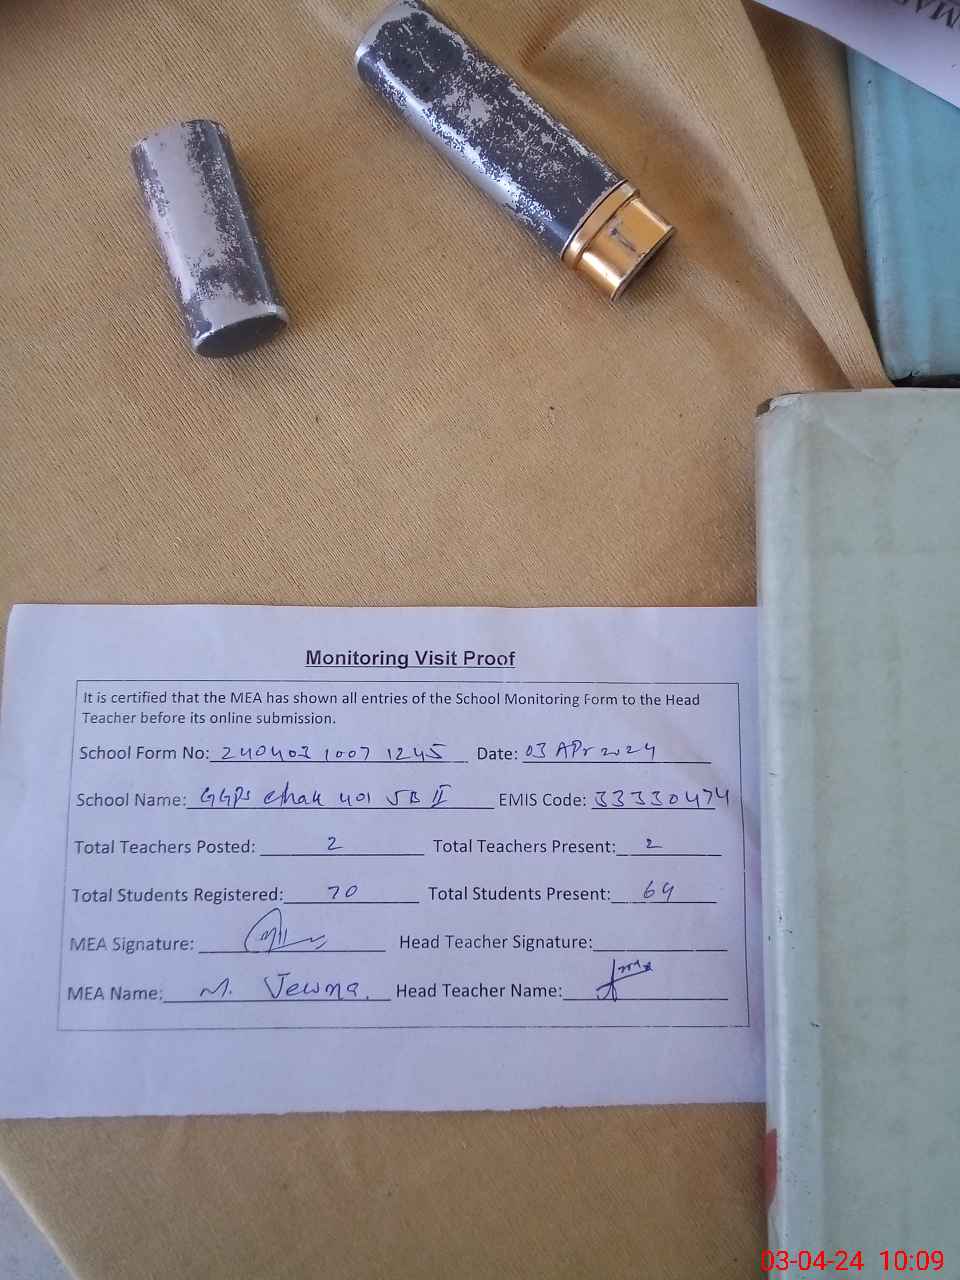 Monitoring Visit Proof
It is certified that the MEA has shown all entries of the School Monitoring Form to the Head
Teacher before its online submission.
School Form No: 240403 1007 1245 Date: 03 APr 2024
School Name: GGPS chak 401 JB II EMIS Code: 33330474
Total Teachers Posted: 2 Total Teachers Present: 2
Total Students Registered: 70 Total Students Present: 64
MEA Signature: Head Teacher Signature:
MEA Name: M. Head Teacher Name:
03-04-24 10:09